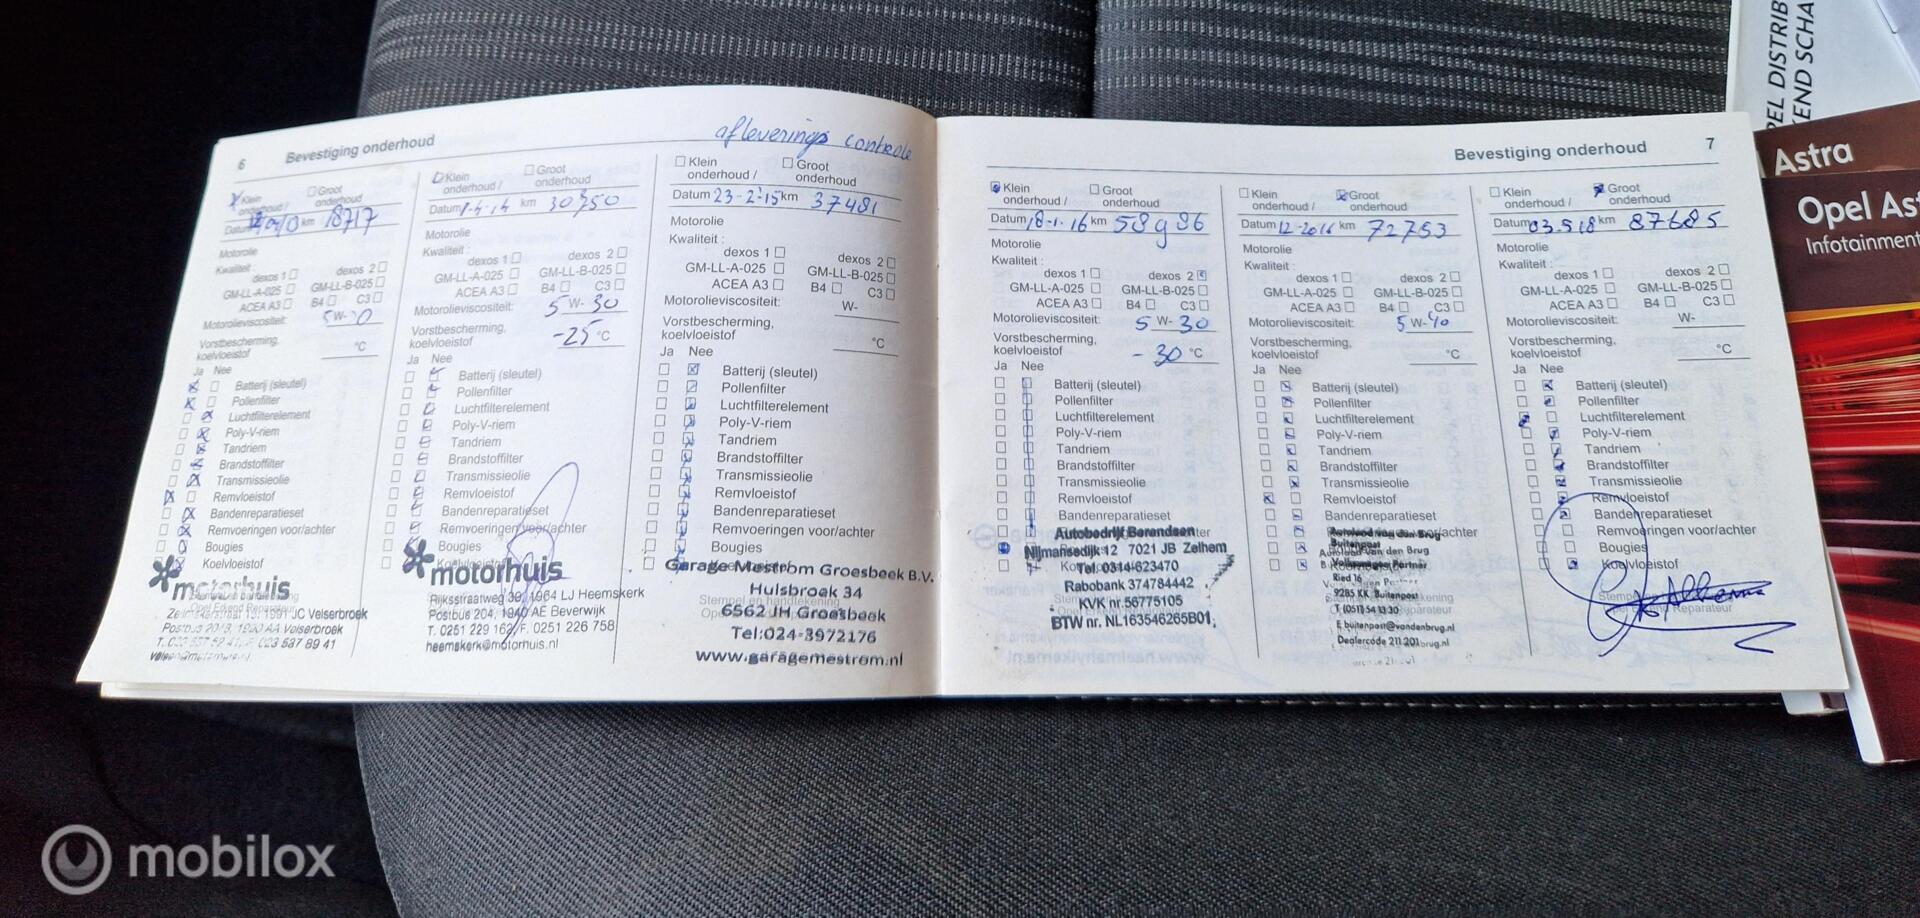 6 Bevestiging onderhoud
afleverings controle
Klein onderhoud / Groot onderhoud
Datum km 18717
Motorolie
Kwaliteit :
dexos 1 dexos 2
GM-LL-A-025 GM-LL-B-025
ACEA A3 B4 C3
Motorolieviscositeit: 5 W-
Vorstbescherming,
koelvloeistof °C
Ja Nee
Batterij (sleutel)
Pollenfilter
Luchtfilterelement
Poly-V-riem
Tandriem
Brandstoffilter
Transmissieolie
Remvloeistof
Bandenreparatieset
Remvoeringen voor/achter
Bougies
Koelvloeistof
motorhuis
1991 JC Velserbroek
Klein onderhoud / Groot onderhoud
Datum 1-4-14 km 30750
Motorolie
Kwaliteit :
dexos 1 dexos 2
GM-LL-A-025 GM-LL-B-025
ACEA A3 B4 C3
Motorolieviscositeit: 5 W- 30
Vorstbescherming,
koelvloeistof -25 °C
Ja Nee
Batterij (sleutel)
Pollenfilter
Luchtfilterelement
Poly-V-riem
Tandriem
Brandstoffilter
Transmissieolie
Remvloeistof
Bandenreparatieset
Remvoeringen voor/achter
Bougies
motorhuis
Rijksstraatweg 39, 1964 LJ Heemskerk
Postbus 204, 1940 AE Beverwijk
T. 0251 229 162 F. 0251 226 758
heemskerk@motorhuis.nl
Klein onderhoud / Groot onderhoud
Datum 23-2-15 km 37481
Motorolie
Kwaliteit :
dexos 1 dexos 2
GM-LL-A-025 GM-LL-B-025
ACEA A3 B4 C3
Motorolieviscositeit: W-
Vorstbescherming,
koelvloeistof °C
Ja Nee
Batterij (sleutel)
Pollenfilter
Luchtfilterelement
Poly-V-riem
Tandriem
Brandstoffilter
Transmissieolie
Remvloeistof
Bandenreparatieset
Remvoeringen voor/achter
Bougies
Garage Mestrom Groesbeek B.V.
Hulsbroek 34
6562 JH Groesbeek
Tel:024-3972176
www.garagemestrom.nl
Bevestiging onderhoud 7
Klein onderhoud / Groot onderhoud
Datum 18-1-16 km 58986
Motorolie
Kwaliteit :
dexos 1 dexos 2
GM-LL-A-025 GM-LL-B-025
ACEA A3 B4 C3
Motorolieviscositeit: 5 W- 30
Vorstbescherming,
koelvloeistof - 30 °C
Ja Nee
Batterij (sleutel)
Pollenfilter
Luchtfilterelement
Poly-V-riem
Tandriem
Brandstoffilter
Transmissieolie
Remvloeistof
Bandenreparatieset
Autobedrijf Berendsen
Nijmansedijk 12 7021 JB Zelhem
Tel. 0314-623470
Rabobank 374784442
KVK nr. 56775105
BTW nr. NL163546265B01
Klein onderhoud / Groot onderhoud
Datum 12-2016 km 72753
Motorolie
Kwaliteit :
dexos 1 dexos 2
GM-LL-A-025 GM-LL-B-025
ACEA A3 B4 C3
Motorolieviscositeit: 5 W- 40
Vorstbescherming,
koelvloeistof °C
Ja Nee
Batterij (sleutel)
Pollenfilter
Luchtfilterelement
Poly-V-riem
Tandriem
Brandstoffilter
Transmissieolie
Remvloeistof
Bandenreparatieset
Autolod van den Brug
Buitenpost
Volkswagen Partner
Ried 16
9285 KK Buitenpost
T (0511) 54 13 30
E buitenpost@vandenbrug.nl
Dealercode 211 201
Klein onderhoud / Groot onderhoud
Datum 03.5.18 km 87685
Motorolie
Kwaliteit :
dexos 1 dexos 2
GM-LL-A-025 GM-LL-B-025
ACEA A3 B4 C3
Motorolieviscositeit: W-
Vorstbescherming,
koelvloeistof °C
Ja Nee
Batterij (sleutel)
Pollenfilter
Luchtfilterelement
Poly-V-riem
Tandriem
Brandstoffilter
Transmissieolie
Remvloeistof
Bandenreparatieset
Remvoeringen voor/achter
Bougies
Koelvloeistof
Astra
Opel Ast
Infotainment
mobilox